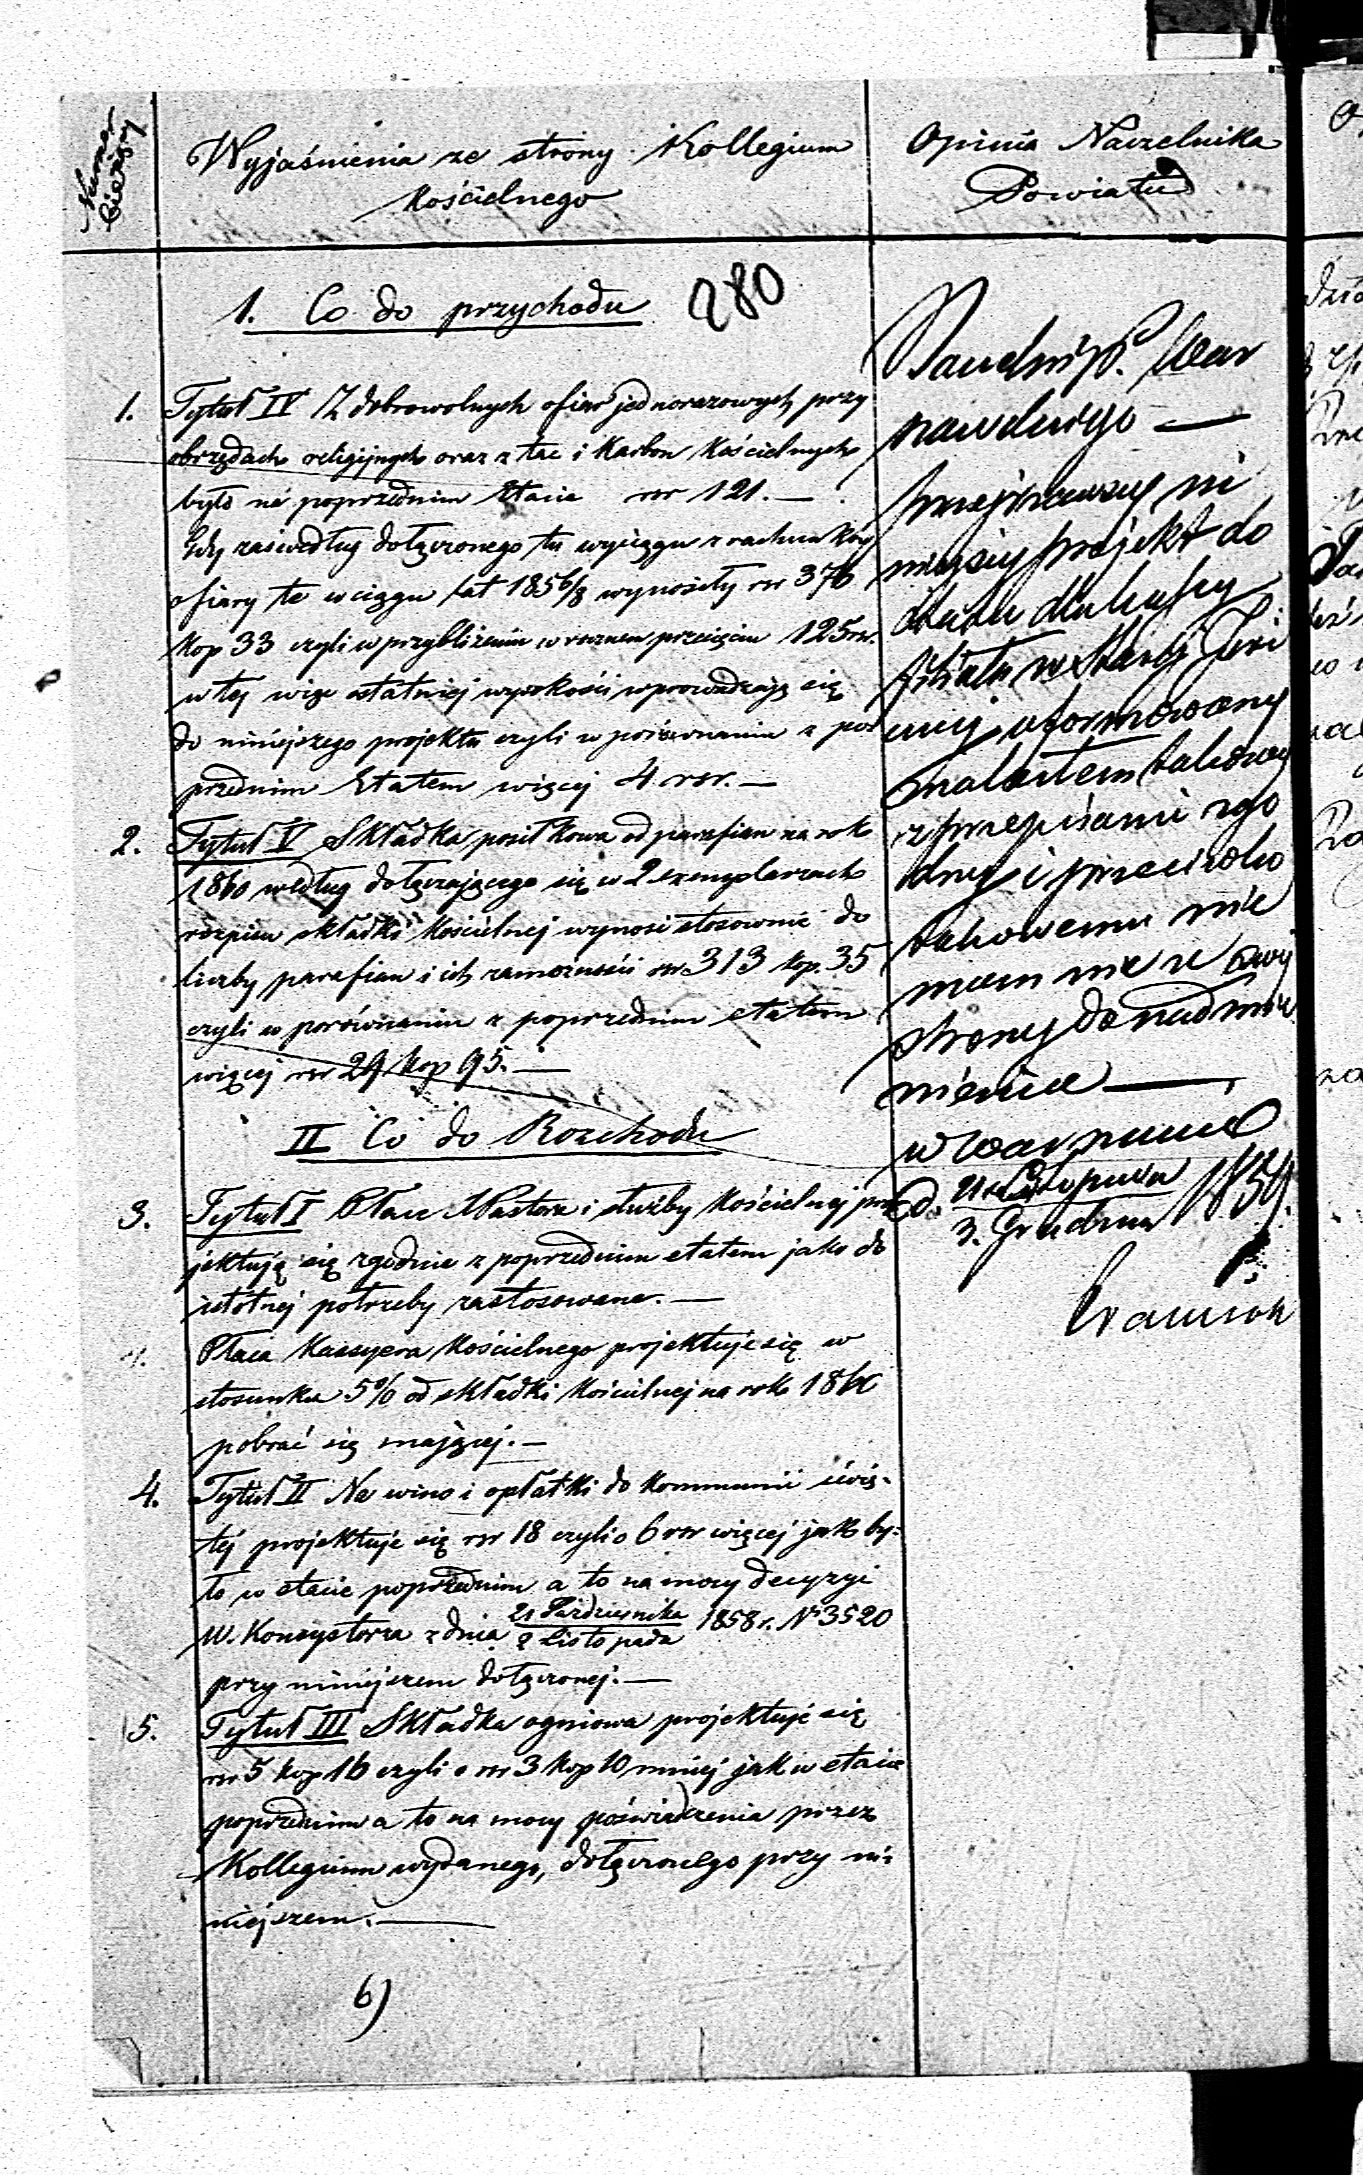 Numer
bieżący
Wyjaśnienia ze strony Kollegium
Kościelnego
Opinia Naczelnika
Powiatu
280
1. Co do przychodu
1. Tytuł IV Z dobrowolnych ofiar jednorazowych przy
obrzędach religijnych oraz z tac i Karbon Kościelnych
było na poprzednim Etacie rsr 121. —
Gdy zaś według dołączonego tu wyciągu z rachunków
ofiary te w ciągu lat 1856/8 wynosiły rsr 376
Kop 33 czyli w przybliżeniu w rocznem przecięciu 125 rsr.
w tej więc ostatniej wysokości wprowadzają się
do niniejszego projektu czyli w porównaniu z po
przednim Etatem więcej 4 rsr. —
2. Tytuł V Składka posiłkowa od parafian na rok
1860 według dołączającego się w 2 exemplarzach
rozpisu składki Kościelnej wynosi stosownie do
liczby parafian i ich zamożności rsr 313 kop. 35
czyli w porównaniu z poprzednim etatem
więcej rsr 29 Kop 95. —
II Co do Rozchodu
3. Tytuł I Płace Pastora i służby Kościelnej pro
jektują się zgodnie z poprzednim etatem jako do
istotnej potrzeby zastosowane. —
Płaca Kassyera Kościelnego projektuje się w
stosunku 5% od składki Kościelnej na rok 1860
pobrać się mającej. —
4. Tytuł II Na wino i opłatki do Kommunii świę-
tej projektuje się rsr 18 czyli o 6 rsr więcej jak by=
ło w etacie poprzednim a to na mocy decyzyi
W. Konsystorza z dnia 21 Października / 2 Listopada 1858 r. № 3520
przy niniejszem dołączonej. —
5. Tytuł III Składka ogniowa projektuje się
rsr 5 kop 16 czyli o rsr 3 Kop 10 mniej jak w etacie
poprzednim a to na mocy poświadczenia przez
Kollegium wydanego, dołączonego przy ni=
niejszem. —
6)
Naczelnik P. War
szawskiego —
przejrzawszy ni
niejszy projekt do
etatu dla
filiału w Starej Iwi
cznej uformowany
znalazłem takowy
z przepisami zgo
dny i przeciwko
takowemu nie
mam nic ze swej
strony do nadmie
nienia —
w Warszawie
d. 21 Listopada / 3. Grudnia 1859.